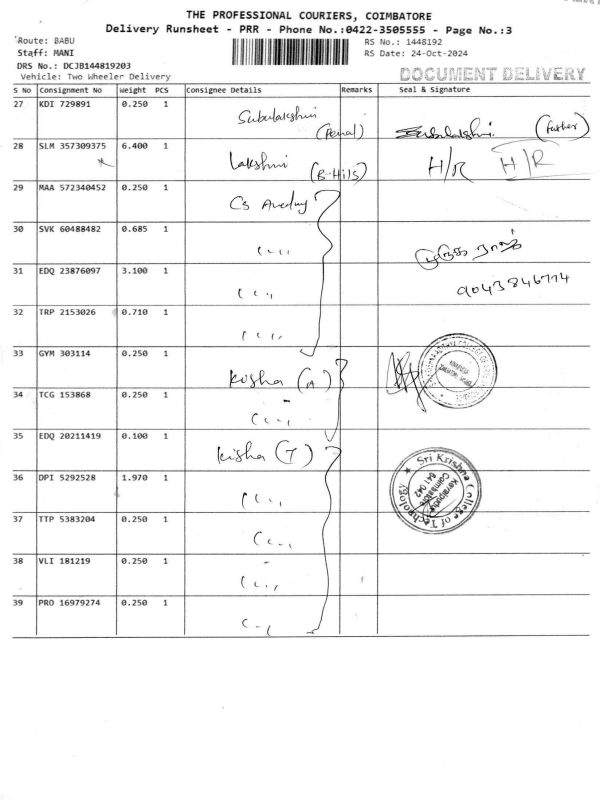 THE PROFESSIONAL COURIERS, COIMBATORE
Delivery Runsheet - PRR - Phone No.:0422-3505555 - Page No.:3
Route: BABU
RS No.: 1448192
Staff: MANI
RS Date: 24-Oct-2024
DRS No.: DCJB144819203
DOCUMENT DELIVERY
Vehicle: Two Wheeler Delivery
S No Consignment No Weight PCS Consignee Details Remarks Seal & Signature
27 KDI 729891 0.250 1 Subulakshmi Subulakshmi. (Father)
28 SLM 357309375 6.400 1 Lakshmi (B-Hils) H/R H/R
29 MAA 572340452 0.250 1 Cs
30 SVK 60488482 0.685 1 " முருக ராஜ்
31 EDQ 23876097 3.100 1 " 9043846774
32 TRP 2153026 0.710 1 "
33 GYM 303114 0.250 1 (A)
34 TCG 153868 0.250 1 "
35 EDQ 20211419 0.100 1 (T)
Sri Krishna College of Technology
Kovaipudur
Coimbatore
641 042
36 DPI 5292528 1.970 1 "
37 TTP 5383204 0.250 1 "
38 VLI 181219 0.250 1 "
39 PRO 16979274 0.250 1 "